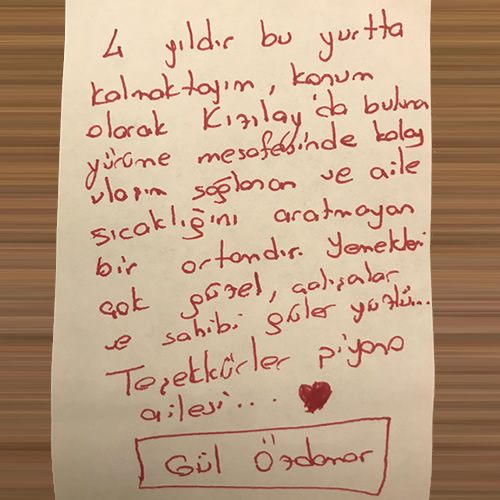 4 yıldır bu yurtta
kalmaktayım, konum
olarak Kızılay'da bulunan
yürüme mesafesinde kolay
ulaşım sağlanan ve aile
sıcaklığını aratmayan
bir ortamdır. Yemekleri
çok güzel, çalışalar
ve sahibi güler yüzlü...
Teşekkürler piyano
ailesi...
Gül Özdamar